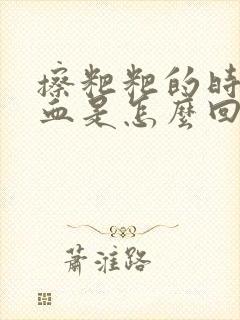 擦粑粑的時
血是怎麼回
蕭淮路